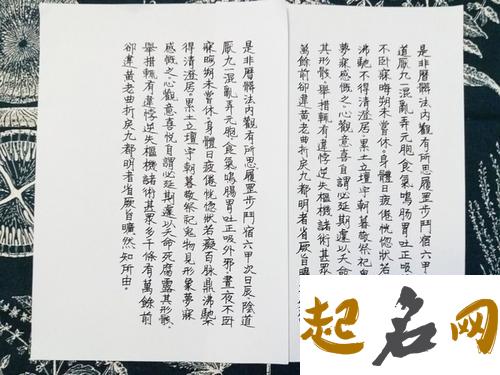 是非曆髒法內觀有所思履罡步鬥宿六甲次
道厭九一混亂弄元胞食氣鳴腸胃吐正吸
不卧寐晦朔未嘗休身體日疲倦恍惚狀若
沸馳不得清澄居累土立壇宇朝暮敬祭祀鬼
夢寐感慨之心觀意喜悅自謂必延期遽以夭命
其形骸舉措輒有違悖逆失樞機諸術甚眾多
萬餘前卻違黃老曲折戾九都明者省厥旨曠然知所由
是非曆髒法內觀有所思履罡步鬥宿六甲次日辰陰道
厭九一混亂弄元胞食氣鳴腸胃吐正吸外邪晝夜不卧
寐晦朔未嘗休身體日疲倦恍惚狀若癡百脉鼎沸馳不
得清澄居累土立壇宇朝暮敬祭祀鬼物見形象夢寐
感慨之心觀意喜悅自謂必延期遽以夭命死腐露其形骸
舉措輒有違悖逆失樞機諸術甚眾多千條有萬餘前
卻違黃老曲折戾九都明者省厥旨曠然知所由
起名网